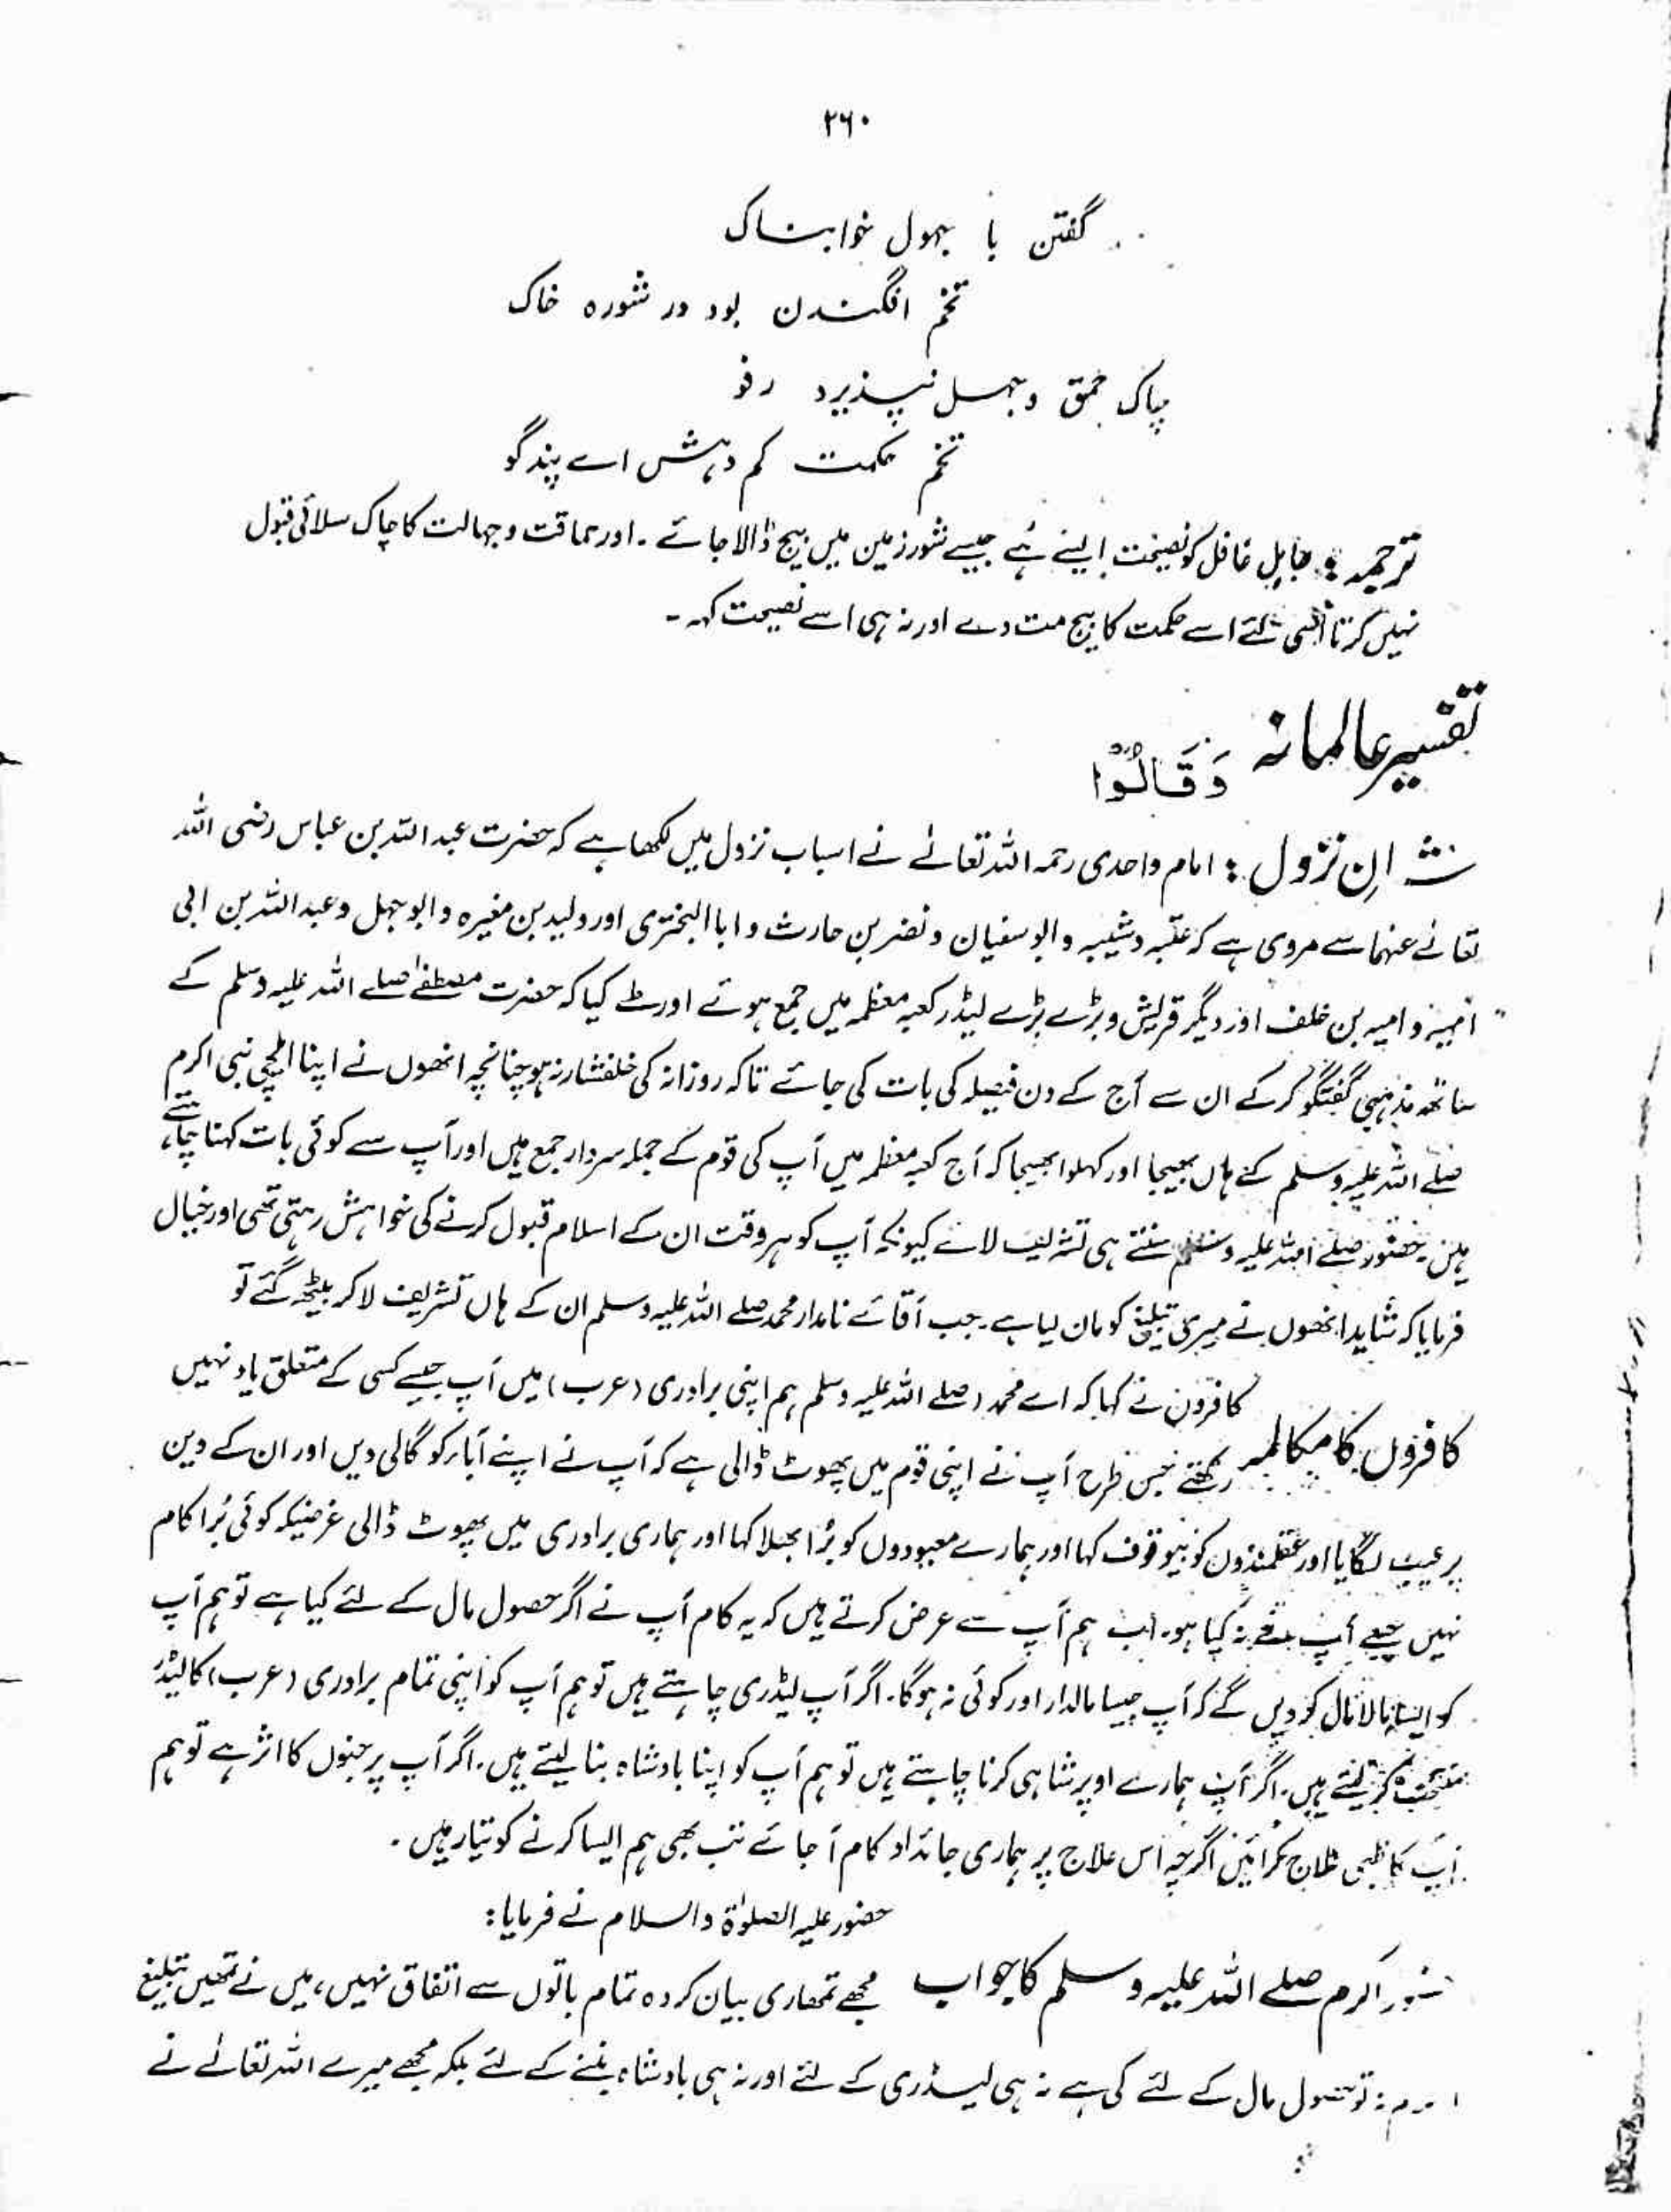 ۲۶۰
گفتن با جہول خوابناک
تخم افگندن بود در شورہ خاک
چاک حمق و جہل نپذیرد رفو
تخم حکمت کم دہش اے پندگو
ترجمہ : جاہل غافل کو نصیحت ایسے ہے جیسے شور زمین میں بیج ڈالا جائے ۔ اور حماقت و جہالت کا چاک سلائی قبول
نہیں کرتا اسی لئے اسے حکمت کا بیج مت دے اور نہ ہی اسے نصیحت کہہ ۔
تفسیر عالمانہ وَقَالُوْا
شانِ نزول : امام واحدی رحمہ اللہ تعالےٰ نے اسباب نزول میں لکھا ہے کہ حضرت عبد اللہ بن عباس رضی اللہ
تعالےٰ عنہما سے مروی ہے کہ عتبہ و شیبہ و ابو سفیان و نضر بن حارث و ابا البختری اور ولید بن مغیرہ و ابوجہل و عبداللہ بن ابی
امیہ و امیہ بن خلف اور دیگر قریش و بڑے بڑے لیڈر کعبہ معظمہ میں جمع ہوئے اور طے کیا کہ حضرت مصطفےٰ صلے اللہ علیہ وسلم کے
ساتھ مذہبی گفتگو کرکے ان سے آج کے دن فیصلہ کی بات کی جائے تاکہ روزانہ کی خلفشار نہ ہو چنانچہ انھوں نے اپنا ایلچی نبی اکرم
صلے اللہ علیہ وسلم کے ہاں بھیجا اور کہلوا بھیجا کہ آج کعبہ معظمہ میں آپ کی قوم کے جملہ سردار جمع ہیں اور آپ سے کوئی بات کہنا چاہتے
ہیں حضور صلے اللہ علیہ وسلم سنتے ہی تشریف لائے کیونکہ آپ کو ہر وقت ان کے اسلام قبول کرنے کی خواہش رہتی تھی اور خیال
فرمایا کہ شاید انھوں نے میری تبلیغ کو مان لیا ہے ۔ جب آقائے نامدار محمد صلے اللہ علیہ وسلم ان کے ہاں تشریف لاکر بیٹھ گئے تو
کافروں کا مکالمہ کافروں نے کہا کہ اے محمد (صلے اللہ علیہ وسلم ہم اپنی برادری (عرب) میں آپ جیسے کسی کے متعلق یاد نہیں
رکھتے جس طرح آپ نے اپنی قوم میں پھوٹ ڈالی ہے کہ آپ نے اپنے آباء کو گالی دیں اور ان کے دین
پر عیب لگایا اور عقلمندوں کو بیوقوف کہا اور ہمارے معبودوں کو بُرا بھلا کہا اور ہماری برادری میں پھوٹ ڈالی غرضیکہ کوئی بُرا کام
نہیں جسے آپ نے نہ کیا ہو۔ اب ہم آپ سے عرض کرتے ہیں کہ یہ کام آپ نے اگر حصول مال کے لئے کیا ہے تو ہم آپ
کو ایسا مالا مال کر دیں گے کہ آپ جیسا مالدار اور کوئی نہ ہوگا۔ اگر آپ لیڈری چاہتے ہیں تو ہم آپ کو اپنی تمام برادری (عرب) کا لیڈر
منتخب کر لیتے ہیں ۔ اگر آپ ہمارے اوپر شاہی کرنا چاہتے ہیں تو ہم آپ کو اپنا بادشاہ بنا لیتے ہیں ۔ اگر آپ پر جنوں کا اثر ہے تو ہم
آپ کا طبی علاج کرائیں اگرچہ اس علاج پر ہماری جائداد کام آ جائے تب بھی ہم ایسا کرنے کو تیار ہیں ۔
حضور علیہ الصلوٰۃ والسلام نے فرمایا :
حضور اکرم صلے اللہ علیہ وسلم کا جواب مجھے تمھاری بیان کردہ تمام باتوں سے اتفاق نہیں ، میں نے تمھیں تبلیغ
نہ تو حصول مال کے لئے کی ہے نہ ہی لیڈری کے لئے اور نہ ہی بادشاہ بننے کے لئے بلکہ مجھے میرے اللہ تعالےٰ نے